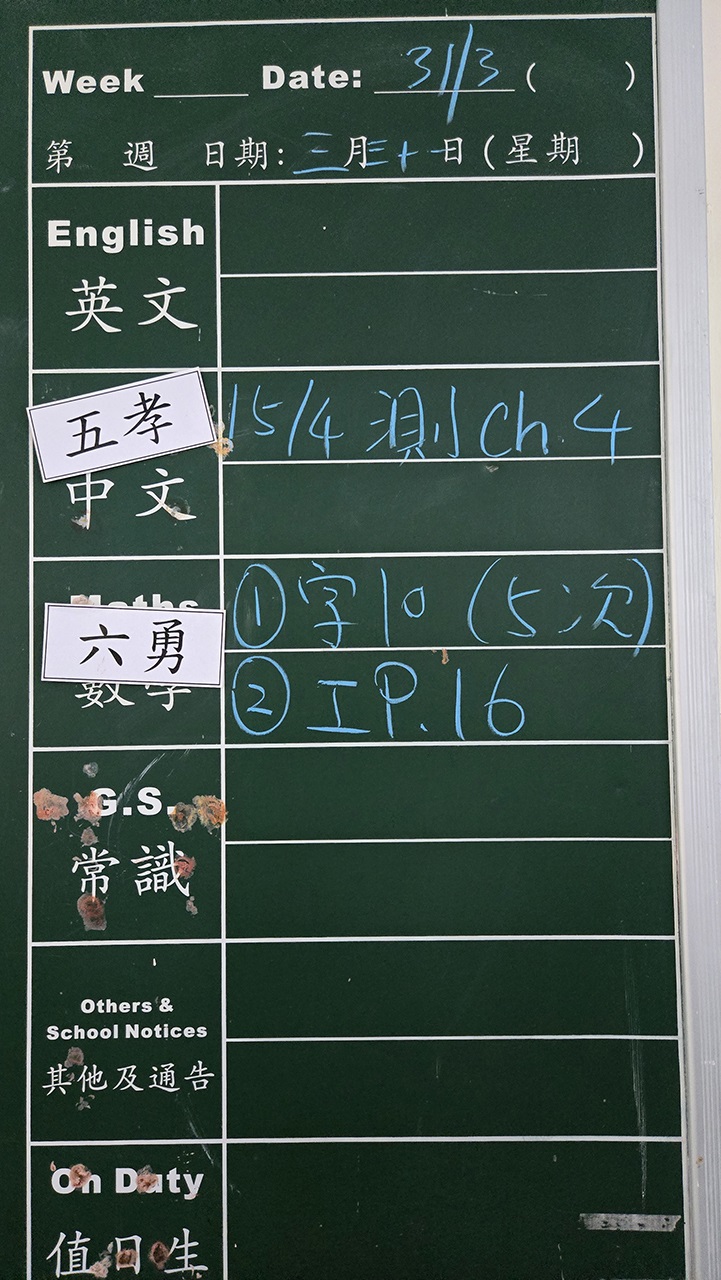 Week ____ Date: 31/3 ( )
第 週 日期: 三月三十一日 (星期 )
English
英文
五孝
15/4 測 Ch.4
中文
Maths
① 字10 (5次)
六勇
數學
② 工P.16
G.S.
常識
Others &
School Notices
其他及通告
On Duty
值日生